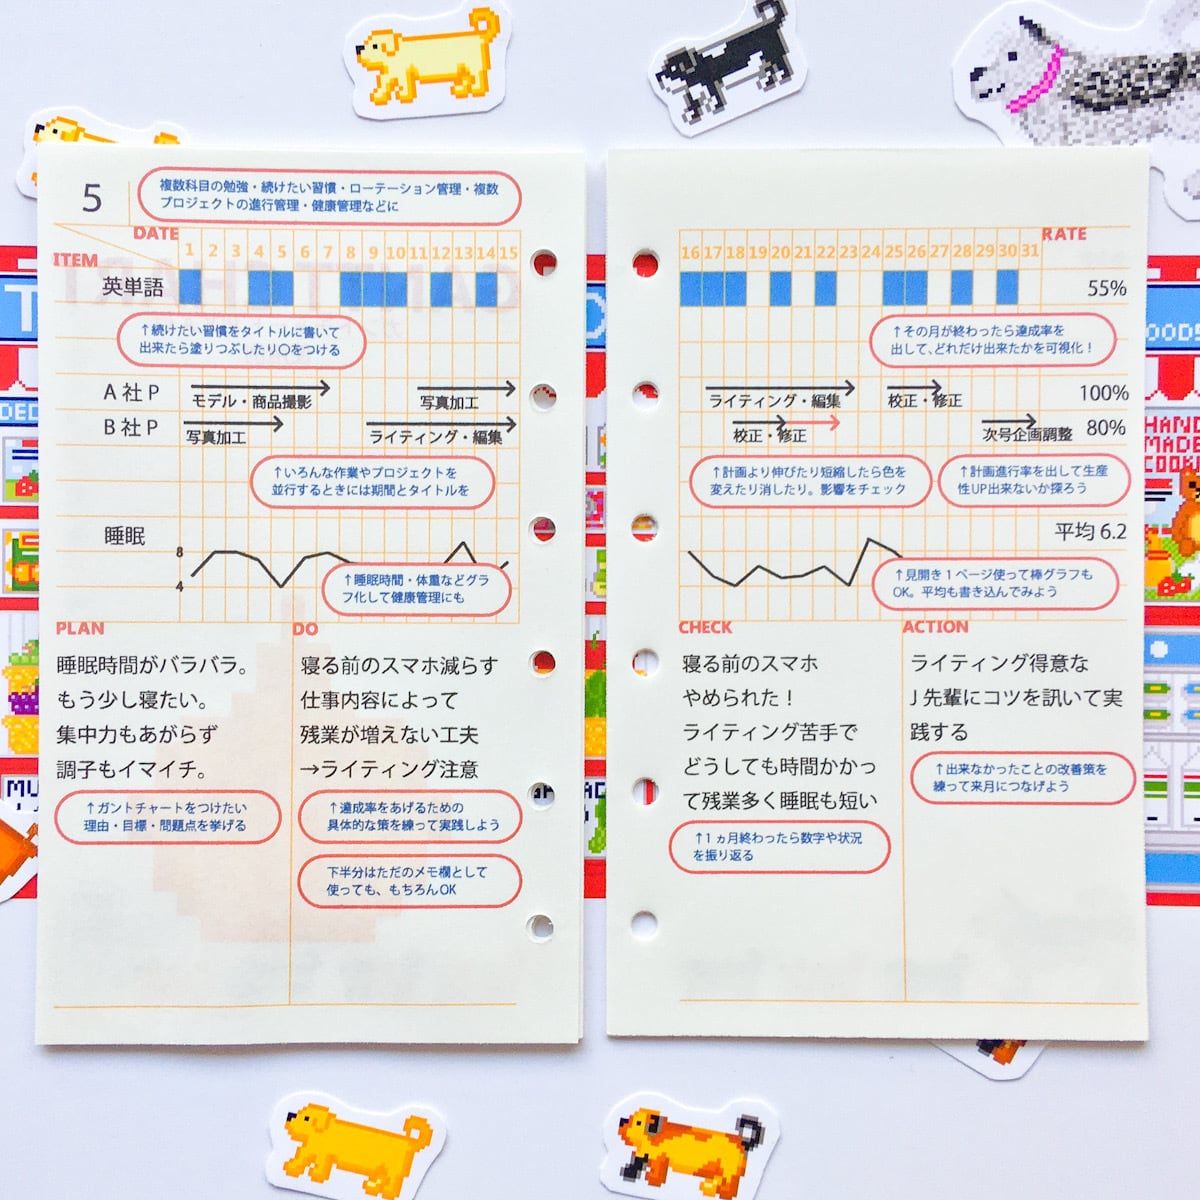 5
複数科目の勉強・続けたい習慣・ローテーション管理・複数
プロジェクトの進行管理・健康管理などに
DATE
1 2 3 4 5 6 7 8 9 10 11 12 13 14 15
ITEM
英単語
↑続けたい習慣をタイトルに書いて
出来たら塗りつぶしたり〇をつける
A社P
モデル・商品撮影
写真加工
B社P
写真加工
ライティング・編集
↑いろんな作業やプロジェクトを
並行するときには期間とタイトルを
睡眠
8
4
↑睡眠時間・体重などグラ
フ化して健康管理にも
PLAN
睡眠時間がバラバラ。
もう少し寝たい。
集中力もあがらず
調子もイマイチ。
↑ガントチャートをつけたい
理由・目標・問題点を挙げる
DO
寝る前のスマホ減らす
仕事内容によって
残業が増えない工夫
→ライティング注意
↑達成率をあげるための
具体的な策を練って実践しよう
下半分はただのメモ欄として
使っても、もちろんOK
RATE
16 17 18 19 20 21 22 23 24 25 26 27 28 29 30 31
55%
↑その月が終わったら達成率を
出して、どれだけ出来たかを可視化！
ライティング・編集
校正・修正
100%
校正・修正
次号企画調整
80%
↑計画より伸びたり短縮したら色を
変えたり消したり。影響をチェック
↑計画進行率を出して生産
性UP出来ないか探ろう
平均 6.2
↑見開き１ページ使って棒グラフも
OK。平均も書き込んでみよう
CHECK
寝る前のスマホ
やめられた！
ライティング苦手で
どうしても時間かかっ
て残業多く睡眠も短い
↑１ヵ月終わったら数字や状況
を振り返る
ACTION
ライティング得意な
J先輩にコツを訊いて実
践する
↑出来なかったことの改善策を
練って来月につなげよう
HAND
MADE